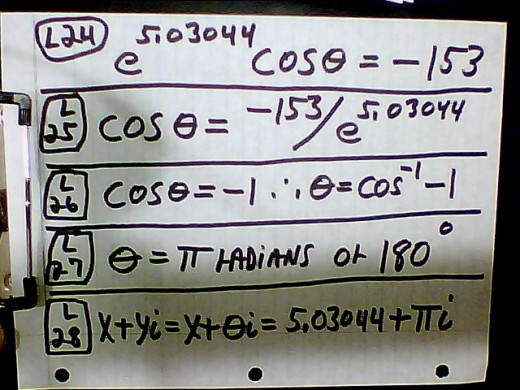 L24 e^5.03044 cosθ = -153
L25 cosθ = -153/e^5.03044
L26 cosθ = -1 ∴ θ = cos^-1 -1
L27 θ = π radians or 180°
L28 x+yi = x+θi = 5.03044+πi